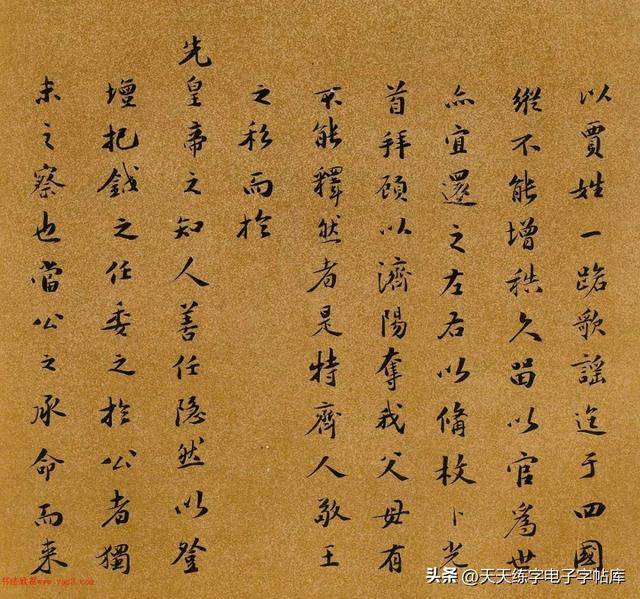 以賈姓一路歌謠迄于四國
縱不能增秩久留以官為世
亦宜還之左右以備枚卜光
首拜頋以濟陽奪我父母有
不能釋然者是特齊人敬王
之私而於
先皇帝之知人善任隱然以登
壇把鉞之任委之於公者獨
未之察也當公之承命而来
书法欣赏
www.yac8.com
头条 @天天练字电子字帖库